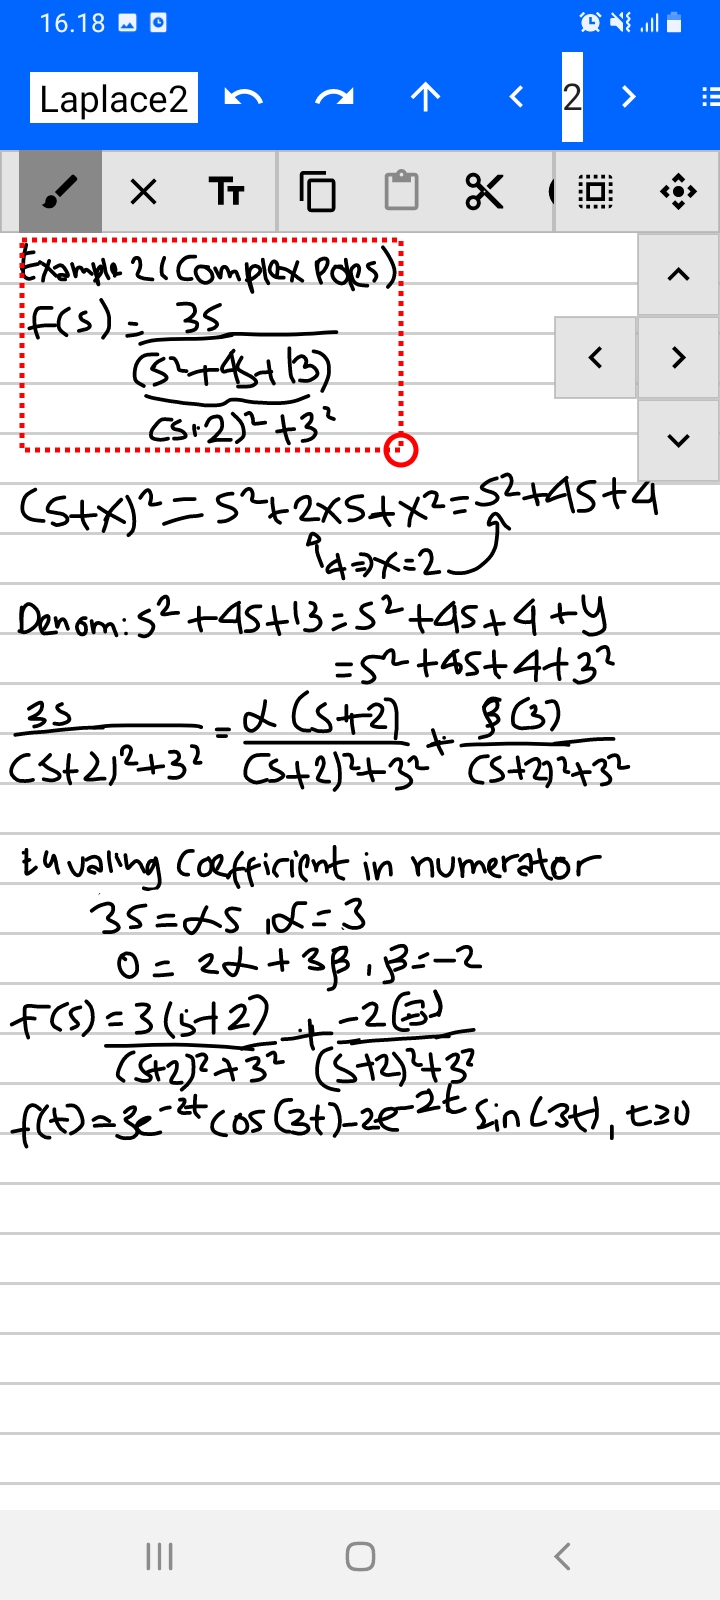 16.18
Laplace2
2
Example 2 (Complex Poles)
F(s) = 3s
(s²+4s+13)
(s+2)²+3²
(s+x)² = s²+2xs+x² = s²+4s+4
4⇒x=2
Denom: s²+4s+13 = s²+4s+4+y
= s²+4s+4+3²
3s / (s+2)²+3² = α(s+2) / (s+2)²+3² + β(3) / (s+2)²+3²
Equaling coefficient in numerator
3s = αs, α = 3
0 = 2α + 3β, β = -2
F(s) = 3(s+2) / (s+2)²+3² + -2(3) / (s+2)²+3²
f(t) = 3e^-2t cos(3t) - 2e^-2t sin(3t), t≥0